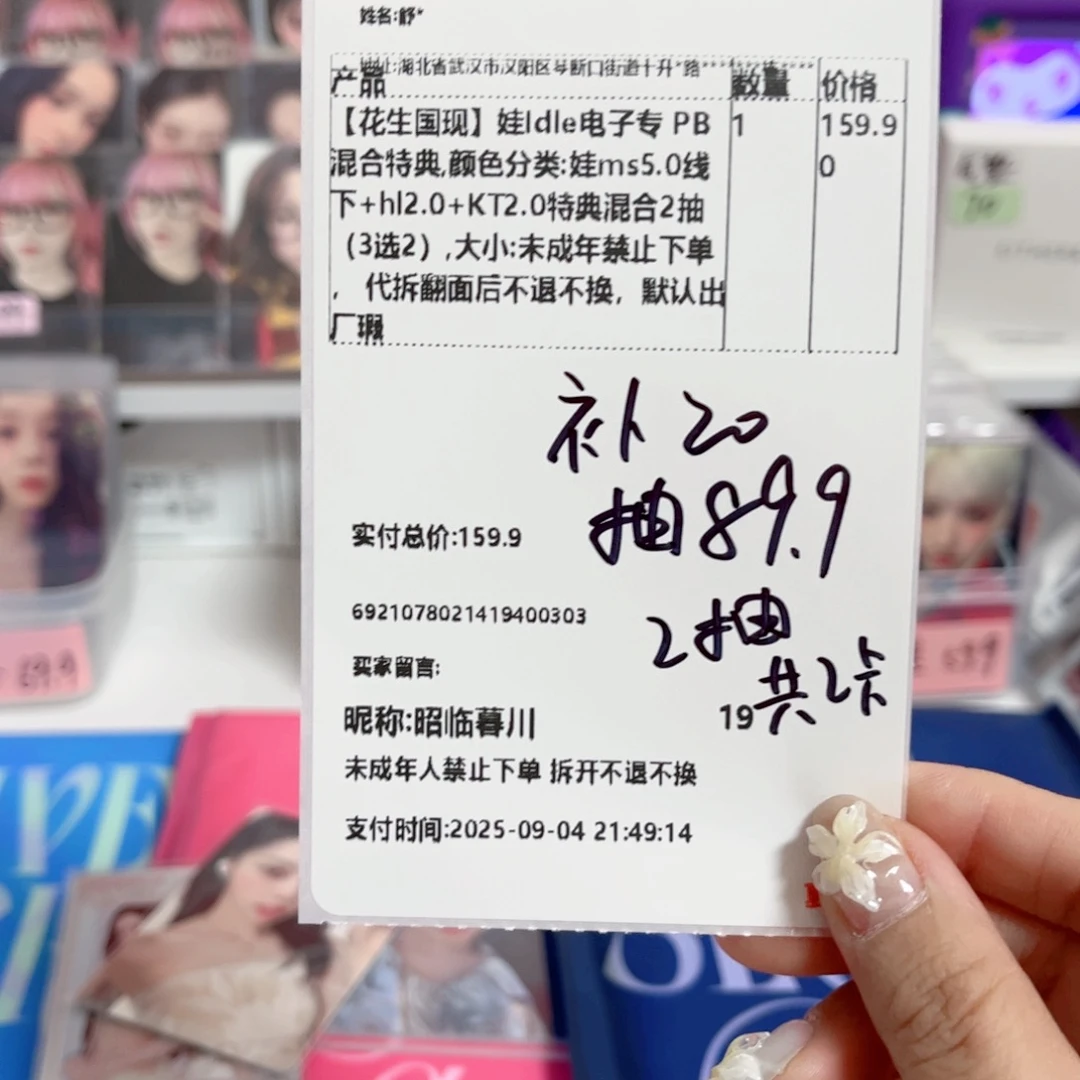 姓名:舒*
地址:湖北省武汉市汉阳区琴断口街道十升*路****
产品 数量 价格
【花生国现】娃Idle电子专 PB 1 159.9
混合特典,颜色分类:娃ms5.0线 0
下+hl2.0+KT2.0特典混合2抽
（3选2）,大小:未成年禁止下单
， 代拆翻面后不退不换，默认出
厂瑕
补20
抽89.9
实付总价:159.9
2抽
6921078021419400303
共2卡
买家留言:
昵称:昭临暮川 19
未成年人禁止下单 拆开不退不换
支付时间:2025-09-04 21:49:14